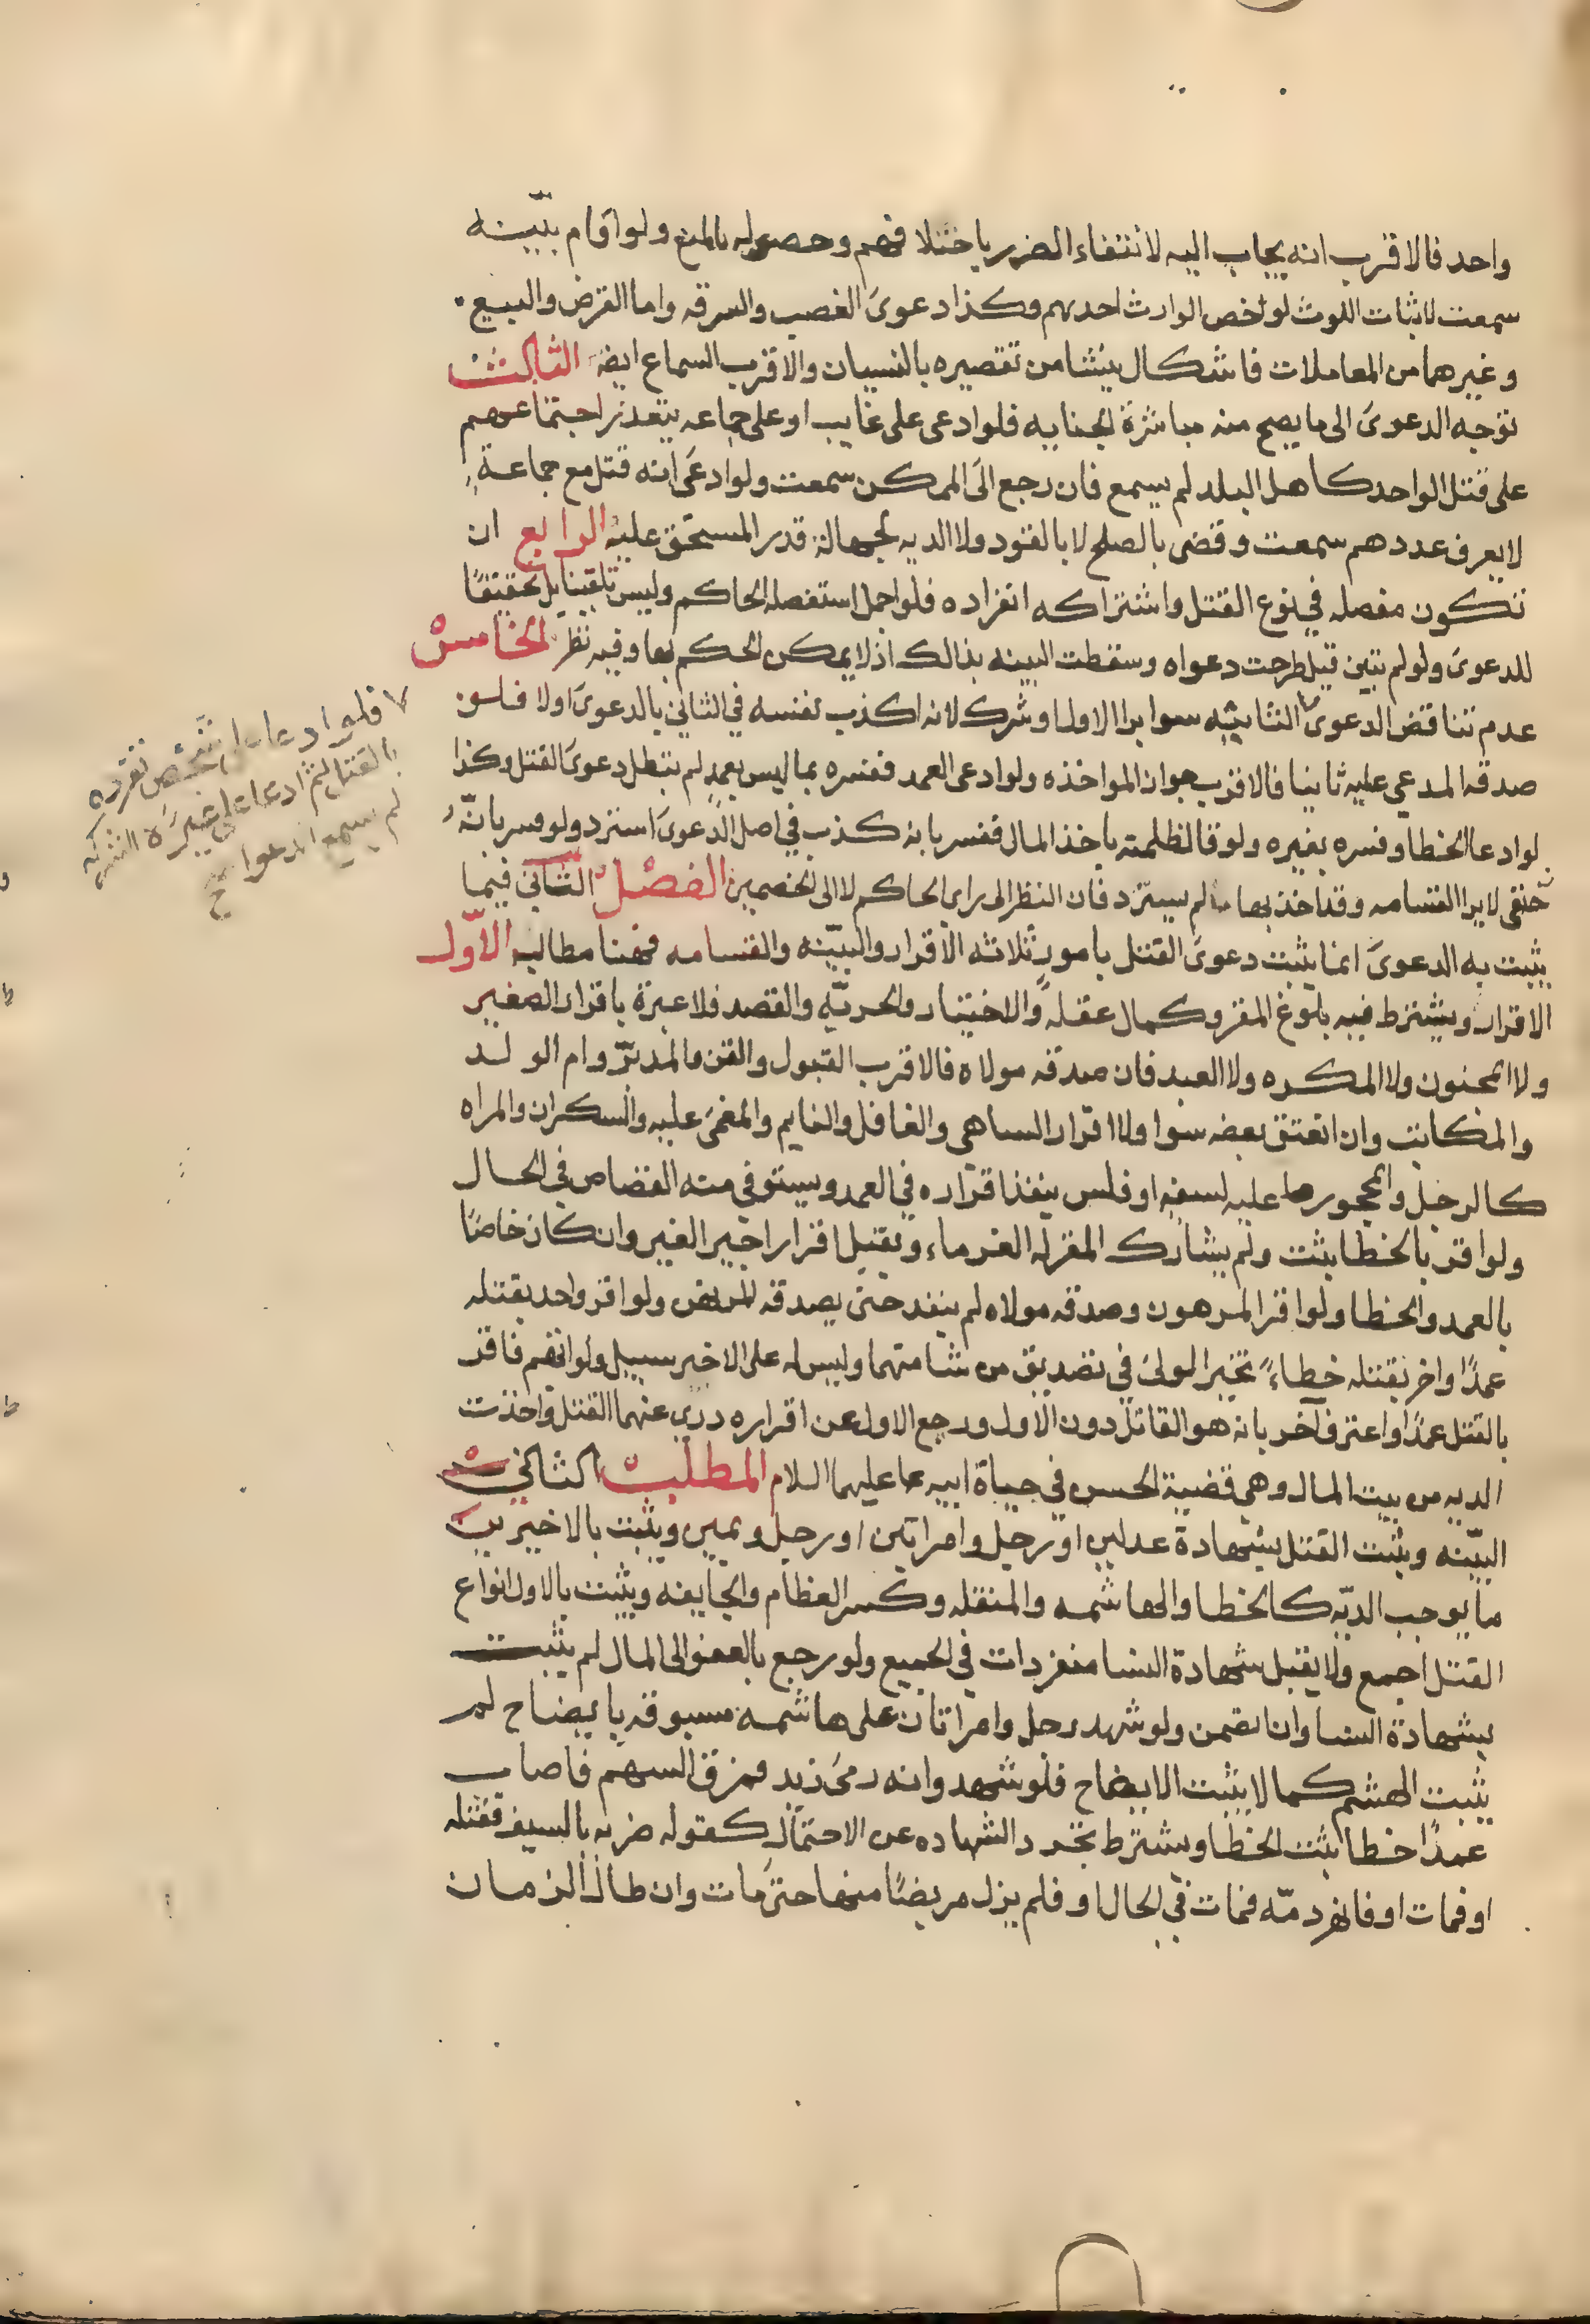 واحد فالاقرب انه يجاب اليه لانتفاء الضرر باختلافهم وحصوله بالمنع ولو اقام ببينه
سمعت لاثبات اللوث لو لخص الوارث احدهم وكذا دعوى الغصب والسرقه واما القرض والبيع
وغيرهما من المعاملات فاشكال ينشا من تقصيره بالنسيان والاقرب السماع ايضا الثالث
توجه الدعوى الى ما يصح منه مباشرة الجنايه فلو ادعى على غايب او على جماعه يتعذر اجتماعهم
على قتل الواحد كاهل البلد لم يسمع فان رجع الى الممكن سمعت ولو ادعى انه قتل مع جماعة
لا يعرف عددهم سمعت وقضى بالصلح لا بالقود ولا الديه لجهالة قدر المستحق عليه الرابع ان
تكون مفصله في نوع القتل واشتراكه انفراده فلو اجمل استفصله الحاكم وليس تلقينا بل تحقيقا
للدعوى ولو لم يتبين قيل طرحت دعواه وسقطت البينه بذالك اذ لا يمكن الحكم بها وفيه نظر الخامس
عدم تناقض الدعوى الثانيه سوا برا الاول او شرك لانه اكذب نفسه في الثاني بالدعوى اولا فلو
صدقه المدعي عليه ثانيا فالاقرب جواز المواخذه ولو ادعى العمد ففسره بما ليس بعمد لم تبطل دعوى القتل وكذا
لو ادعا الخطا وفسره بغيره ولو قال ظلمته باخذ المال ففسر بانه كذب في اصل الدعوى استرد ولو فسر بانه
حنفى لا يرا القسامه وقد اخذ بها لم يسترد فان النظر الى راي الحاكم لا الى الخصمين الفصل الثاني فيما
يثبت به الدعوى انما يثبت دعوى القتل بامور ثلاثه الاقرار والبينه والقسامه فهنا مطالب الاول
الاقرار ويشترط فيه بلوغ المقر وكمال عقله والاختيار والحريه والقصد فلا عبرة باقرار الصغير
ولا المجنون ولا المكره ولا العبد فان صدقه مولاه فالاقرب القبول والقن والمدبر وام الولد
والمكاتب وان انعتق بعضه سوا ولا اقرار الساهى والغافل والنايم والمغمى عليه والسكران والمراه
كالرجل والمحجور عليه لسفه او فلس ينفذ اقراره في العمد ويستوفي منه القصاص في الحال
ولو اقر بالخطا يثبت ولم يشارك المقر له الغرماء ويقبل اقرار اجير الغير وان كان خاصا
بالعمد والخطا ولو اقر المرهون وصدقه مولاه لم ينفذ حتى يصدقه المرتهن ولو اقر واحد بقتله
عمدا واخر بقتله خطاء تخير الولى في تصديق من شا منهما وليس له على الاخير سبيل ولو اتهم فاقر
بالقتل عمدا واعترف آخر بانه هو القاتل دون الاول ورجع الاول عن اقراره دري عنهما القتل واخذت
الديه من بيت المال وهي قضية الحسن في حياة ابيه عليهما السلام المطلب الثاني
البينه ويثبت القتل بشهادة عدلين او رجل وامراتين او رجل ويمين ويثبت بالاخيرين
ما يوجب الديه كالخطا والهاشمه والمنقله وكسر العظام والجايفه ويثبت بالاول انواع
القتل اجمع ولا يقبل شهادة النسا منفردات في الجميع ولو رجع بالعفو الى المال لم يثبت
بشهادة النسا وان انضممن ولو شهد رجل وامراتان على هاشمه مسبوقه بايضاح لم
يثبت الهشم كما لا يثبت الايضاح فلو شهدوا انه رمى زيد فمرق السهم فاصاب
عمدا خطا يثبت الخطا ويشترط تجرد الشهاده عن الاحتمال كقوله ضربه بالسيف فقتله
او فمات او فانهر دمه فمات في الحال او فلم يزل مريضا منها حتى مات وان طال الزمان
فلو ادعا على شخص تفرده
بالقتل ثم ادعا على غيره الشركه
لم يسمع الدعوا صح